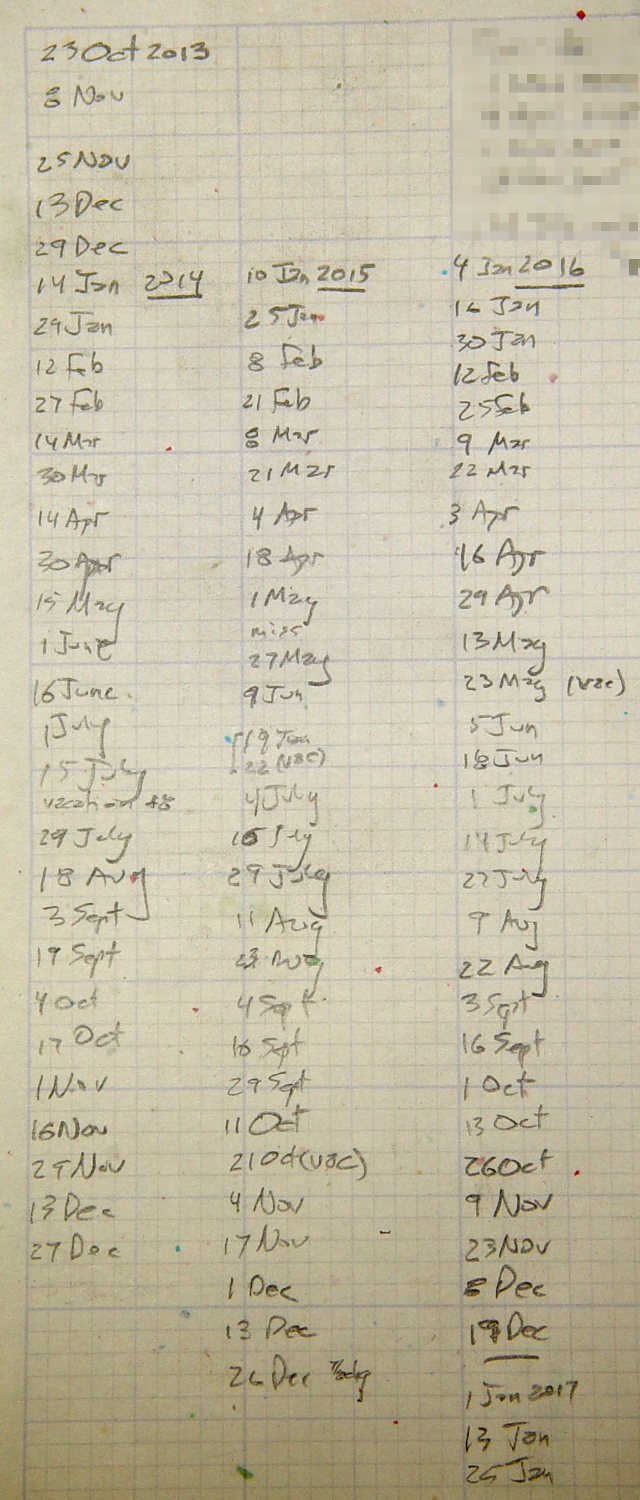 23 Oct 2013
8 Nov
25 Nov
13 Dec
29 Dec
14 Jan 2014
29 Jan
12 Feb
27 Feb
14 Mar
30 Mar
14 Apr
30 Apr
15 May
1 June
16 June
1 July
15 July
vacation
29 July
18 Aug
3 Sept
19 Sept
4 Oct
17 Oct
1 Nov
16 Nov
29 Nov
13 Dec
27 Dec
10 Jan 2015
25 Jan
8 Feb
21 Feb
8 Mar
21 Mar
4 Apr
18 Apr
1 May
miss
27 May
9 Jun
19 Jun
22 (vac)
4 July
16 July
29 July
11 Aug
23 Aug
4 Sept
16 Sept
29 Sept
11 Oct
21 Oct (vac)
4 Nov
17 Nov
1 Dec
13 Dec
26 Dec
4 Jan 2016
16 Jan
30 Jan
12 Feb
25 Feb
9 Mar
22 Mar
3 Apr
16 Apr
29 Apr
13 May
23 May (vac)
5 Jun
18 Jun
1 July
14 July
27 July
9 Aug
22 Aug
3 Sept
16 Sept
1 Oct
13 Oct
26 Oct
9 Nov
23 Nov
8 Dec
19 Dec
1 Jan 2017
13 Jan
25 Jan